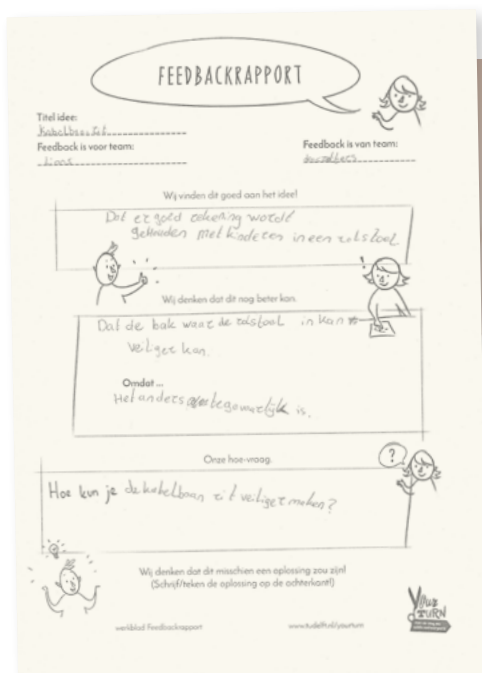 FEEDBACKRAPPORT
Titel idee:
Kabelbaanzit
Feedback is voor team:
Lions
Feedback is van team:
Wij vinden dit goed aan het idee!
Dat er goed rekening wordt
gehouden met kinderen in een rolstoel
Wij denken dat dit nog beter kan.
Dat de bak waar de rolstoel in kan
veiliger kan.
Omdat ...
Het anders is.
Onze hoe-vraag.
Hoe kun je de kabelbaan zit veiliger maken?
?
Wij denken dat dit misschien een oplossing zou zijn!
(Schrijf/teken de oplossing op de achterkant!)
YOUR
TURN
werkblad Feedbackrapport
www.tudelft.nl/yourturn